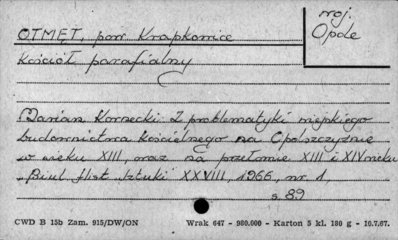 woj.
Opole
OTMĘT, pow. Krapkowice
Kościół parafialny
Marian Kornecki Z problematyki miejskiego
budownictwa kościelnego na Opolszczyźnie
w wieku XIII, oraz na przełomie XIII i XIV wieku
"Biul. Hist. Sztuki XXVIII, 1966, nr 1,
s. 89
CWD B 15b Zam. 915/DW/ON Wrak 647 - 980.000 - Karton 5 kl. 180 g - 10.7.67.